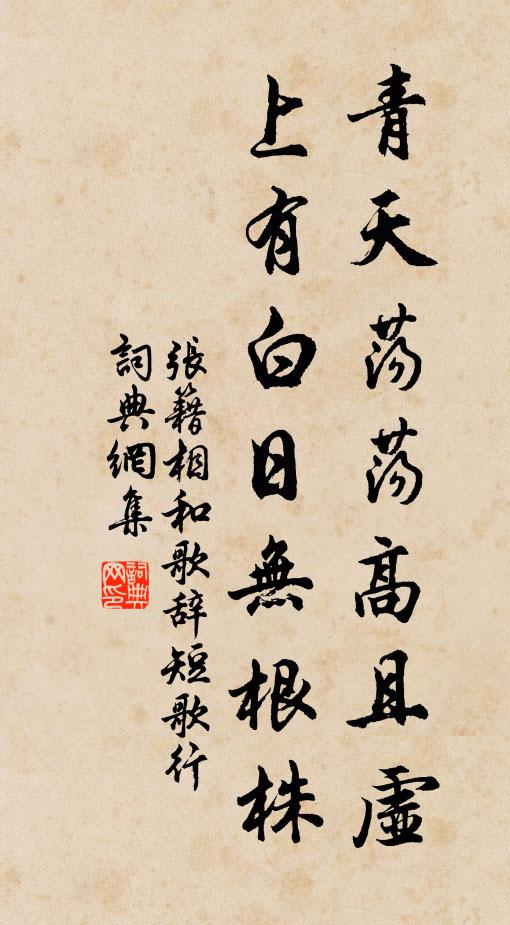 青天蕩蕩高且虛
上有白日無根株
張籍相和歌辞短歌行
詞典網集
詞典网印